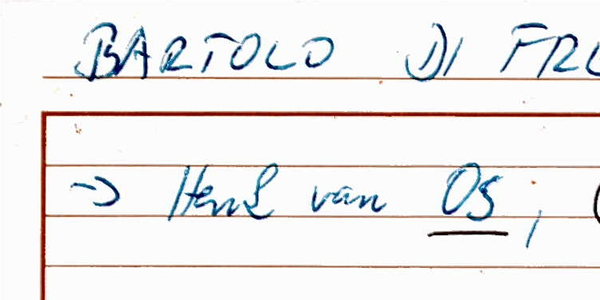 BARTOLO DI FRE
→ Henk van Os; (